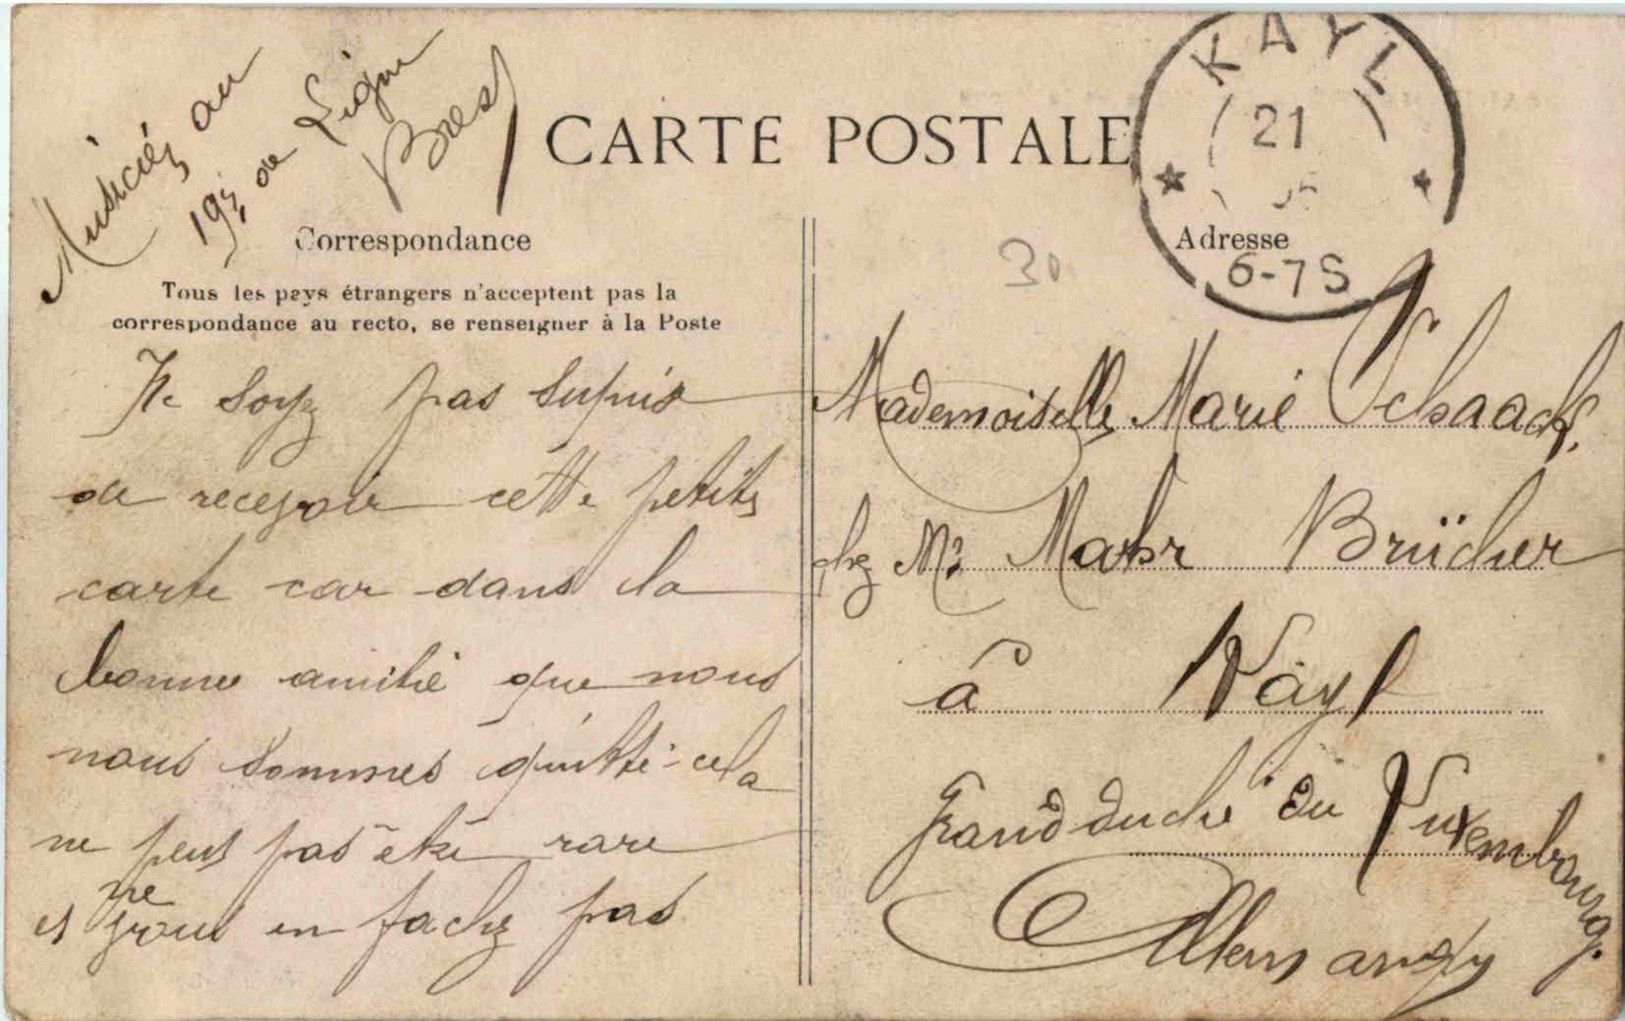 Musicien au
19e de Ligne
Brest
CARTE POSTALE
KAYL
21
6-7S
Correspondance
Tous les pays étrangers n'acceptent pas la
correspondance au recto, se renseigner à la Poste
Adresse
30
Ne soyz pas supris
de recevoir cette petite
carte car dans la
bonne amitié que nous
nous sommes quitté cela
ne peut pas été rare
et ne vous en fachz pas
Mademoiselle Marie Schaack.
chez Mr Mahr Brücher
à Kayl
Grand duché du Luxembourg.
Allemangy